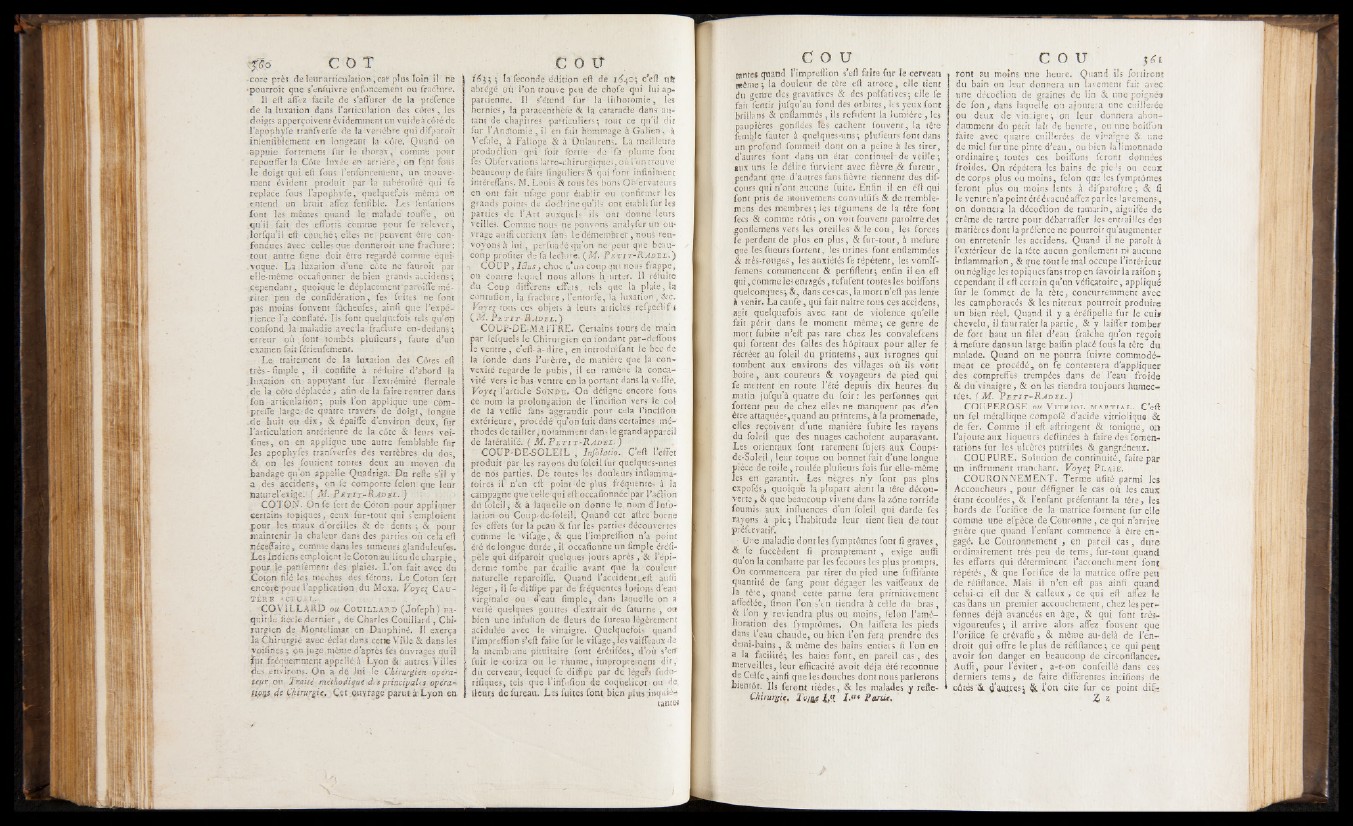 360 COT
core près de leur articulation, car plus loin il ne
pourroit que s'ensuivre enfoncement ou fracture.
Il est assez facile de s'assurer de la présence
de la luxation dans l'articulation des côtes; les
doigts apperçoivent évidemment un vuide à côté de
l'apophyse transverse de la vertèbre qui disparoit
insensiblement en longeant la côte. Quand on
appuie fortement sur le thorax, comme pour
repousser la Côte luxée en arrière, on sent sous
le doigt qui est sous l'enfoncement, un mouve-
ment évident produit par la tubérosité qui se
replace sous l'apophyse, quelquefois même on
entend un bruit assez sensible. Les sensations
sont les mêmes quand le malade tousse, ou
qu'il fait des efforts comme pour se relever,
lorsqu'il est couché; elles ne peuvent être con-
fondues avec celles que donneroit une fracture:
tout autre signe doit être regardé comme équi-
voque. La luxation d'une côte ne sauroit par
elle-même occasionner de bien grands accidens;
cependant, quoique le déplacement paroisse mé-
riter peu de considération, ses suites ne sont
pas moins souvent fâcheuses, ainsi que l'expé-
rience l'a constaté. Ils sont quelquefois tels qu'on
confond la maladie avec la fracture en-dedans;
erreur où sont tombés plusieurs, faute d'un
examen fait sérieusement.
Le traitement de la luxation des Côtes est
très-simple, il consiste à réduire d'abord la
luxation en appuyant sur l'extrémité sternale
de la côte déplacée, afin de la faire rentrer dans
son articulation; puis l'on applique une com-
presse large de quatre travers de doigt, longue
de huit ou dix, & épaisse d'environ deux, sur
l'articulation antérieure de la côte & leurs voi-
sines, on en applique une autre semblable sur
les apophyses transverses des vertèbres du dos,
& on les soutient toutes deux au moyen du
bandage qu'on appelle Quadriga. Du reste s'il y
a des accidens, on se comporte selon que leur
naturel exige. (M. PETIT-RADEL.)
COTON. On se sert de Coton pour appliquer
certains topiques, ceux sur-tout qui s'emploient
pour les maux d'oreilles & de dents; & pour
maintenir la chaleur dans des parties où cela est
nécessaire, comme dans les tumeurs glanduleuses.
Les Indiens emploient le Coton au lieu de charpie,
pour le pansement des plaies. L'on fait avec du
Coton filé les mèches des sétons. Le Coton sert
encore pour l'application du Moxa. Voyez CAU-
TÈRE ACTUEL.
COVILLARD ou COUILLARD (Joseph) na-
quit le siècle dernier, de Charles Couillard, Chi-
rurgien de Montélimar en Dauphiné. Il exerça
la Chirurgie avec éclat dans cette Ville & dans les
voisines; on juge même d'après ses ouvrages qu'il
fut fréquemment appellé à Lyon & autres Villes
des environs. On a de lui le Chirurgien opéra-
teur ou Traité méthodique des principales opéra-
tions de Chirurgie. Cet ouvrage parut à Lyon en
COU
1633; la seconde édition est de 1640; c'est un
abrégé où l'on trouve peu de chose qui lui ap-
partienne. Il s'étend sur la lithotomie, les
hernies, la paracenthèse & la cataracte dans au-
tant de chapitres particuliers; tout ce qu'il dit
sur l'Anatomie, il en fait hommage à Galien, à
Vesale, à Fallope & à Dulaurens. La meilleure
production qui soit sortie de sa plume sont
ses Observations iatro-chirurgiques, où l'on trouve
beaucoup de faits singuliers & qui sont infiniment
intéressans. M. Louis & tous les bons Observateurs
en ont fait usage pour établir ou confirmer les
grands points de doctrine qu'ils ont établi sur les
parties de l'Art auxquels ils ont donné leurs
veilles. Comme nous ne pouvons analyser un ou-
vrage aussi curieux sans le démembrer, nous ren-
voyons à lui, persuadé qu'on ne peut que beau-
coup profiter de sa lecture. (M. PETIT-RADEL.)
COUP, Ictus, choc d'un coup qui nous frappe,
ou contre lequel nous allons heurter. Il résulte
du Coup différens effets, tels que la plaie, la
contusion, la fracture, l'entorse, la luxation, &c.
Voyez tous ces objets à leurs articles respectifs
(M. PETIT-RADEL.)
COUP-DE-MAITRE. Certains tours de main
par lesquels le Chirurgien en tondant par-dessous
le ventre, c'est-à-dire, en introduisant le bec de
la sonde dans l'urètre, de manière que la con-
vexité regarde le pubis, il en ramène la conca-
vité vers le bas ventre en la portant dans la vessie.
Voyez l'article SONDE. On désigne encore sous
ce nom la prolongation de l'incision vers le col
de la vessie sans aggrandir pour cela l'incision
extérieure, procédé qu'on suit dans certaines mé-
thodes de tailler, notamment dans le grand appareil
de latéralisé. (M. PETIT-RADEL.)
COUP-DE-SOLEIL, Insolatio. C'est l'effet
produit par les rayons du soleil sur quelques-unes
de nos parties. De toutes les douleurs inflamma-
toires il n'en est point de plus fréquentes à la
campagne que celle qui est occasionnée par l'action
du soleil, & à laquelle on donne le nom d'Inso-
lation ou Coup-de-soleil. Quand cet astre borne
ses effets sur la peau & sur les parties découvertes
comme le visage, & que l'impression n'a point
été de longue durée, il occasionne un simple érési-
pèle qui disparoit quelques jours après, & l'épi-
derme tombe par écaille avant que la couleur
naturelle reparoisse. Quand l'accident est aussi
léger, il se dissipe par de fréquentes lotions d'eau
virginale ou d'eau simple, dans laquelle on a
versé quelques gouttes d'extrait de saturne, ou
bien une infusion de fleurs de sureau légèrement
acidulée avec le vinaigre. Quelquefois quand
l'impression s'est faite sur le visage, les vaisseaux de
la membrane pituitaire sont érétisées, d'où s'en
suit le coriza ou le rhume, improprement dit,
du cerveau, lequel se dissipe par de légers sudo-
rifiques, tels que l'infusion de coquelicot ou de
fleurs de sureau. Les suites sont bien plus inquié-
tantes
COU
tantes quand l'impression s'est faite sur le cerveau
même; la douleur de tête est atroce, elle tient
du genre des gravatives & des pulsatives; elle se
fait sentir jusqu'au fond des orbites, les yeux sont
brillans & enflammés, ils resistent la lumière, les
paupières gonflées les cachent souvent, la tête
semble sauter à quelques-uns; plusieurs sont dans
un profond sommeil dont on a peine à les tirer,
d'autres sont dans un état continuel de veille;
aux uns le délire survient avec fièvre & fureur,
pendant que d'autres sans fièvre tiennent des dis-
cours qui n'ont aucune suite. Enfin il en est qui
sont pris de mouvemens convulsifs & de tremble-
mens des membres; les tégumens de la tête sont
secs & comme rôtis, on voit souvent paroître des
gonflemens vers les oreilles & le cou, les forces
se perdent de plus en plus, & sur-tout, à mesure
que les sueurs sortent, les urines sont enflammées
& très-rouges, les anxiétés se répètent, les vomis-
semens commencent & persistent; enfin il en est
qui, comme les enragés, refusent toutes les boissons
quelconques; &, dans ces cas, la mort n'est pas lente
à venir. La cause, qui fait naître tous ces accidens,
agit quelquefois avec tant de violence qu'elle
fait périr dans le moment même; ce genre de
mort subite n'est pas rare chez les convalescens
qui sortent des salles des hôpitaux pour aller se
récréer au soleil du printems, aux ivrognes qui
tombent aux environs des villages où ils vont
boire, aux coureurs & voyageurs de pied qui
se mettent en route l'été depuis dix heures du
matin jusqu'à quatre du soir: les personnes qui
sortent peu de chez elles ne manquent pas d'en
être attaquées, quand au printems, à la promenade,
elles reçoivent d'une manière subite les rayons
du soleil que des nuages cachoient auparavant.
Les orientaux sont rarement sujets aux Coups-
de-Soleil, leur toque ou bonnet fait d'une longue
pièce de toile, roulée plusieurs fois sur elle-même
les en garantit. Les nègres n'y sont pas plus
exposés, quoique la plupart aient la tête décou-
verte, & que beaucoup vivent dans la zône torride
soumis aux influences d'un soleil qui darde ses
rayons à pic; l'habitude leur tient lieu de tout
préservatif.
Une maladie dont les symptômes sont si graves,
& se succèdent si promptement, exige aussi
qu'on la combatte par les secours les plus prompts.
On commencera par tirer du pied une suffisante
quantité de sang pour dégager les vaisseaux de
la tête, quand cette partie sera primitivement
affectée, sinon l'on s'en tiendra à celle du bras,
& l'on y reviendra plus ou moins, selon l'amé-
lioration des symptômes. On laissera les pieds
dans l'eau chaude, ou bien l'on fera prendre des
demi-bains, & même des bains entiers si l'on en
a la facilité; les bains sont, en pareil cas, des
merveilles, leur efficacité avoit déjà été reconnue
de Celse, ainsi que les douches dont nous parlerons
bientôt. Ils seront tièdes, & les malades y reste-
Chirurgie. Tome I.er I.re Partie.
COU 361
ront au moins une heure. Quand ils sortiront
du bain on leur donnera un lavement fait avec
une décoction de graines de lin & une poignée
de son, dans laquelle on ajoutera une cuillerée
ou deux de vinaigre; on leur donnera abon-
damment du petit lait de beurre, ou une boisson
faite avec quatre cuillerées de vinaigre & une
de miel sur une pinte d'eau, ou bien la limonnade
ordinaire; toutes ces boissons seront données
froides. On répétera les bains de pieds ou ceux
de corps plus ou moins, selon que les symptômes
seront plus ou moins lents à disparoître; & si
le ventre n'a point été évacué assez par les lavemens,
on donnera la décoction de tamarin, aiguisée de
crême de tartre pour débarrasser les entrailles des
matières dont la présence ne pourroit qu'augmenter
ou entretenir les accidens. Quand il ne paroît à
l'extérieur de la tête aucun gonflement ni aucune
inflammation, & que tout le mal occupe l'intérieur
on néglige les topiques sans trop en savoir la raison;
cependant il est certain qu'on vésicatoire, appliqué
sur le sommet de la tête, concurremment avec
les camphoracés & les nitreux pourroit produire
un bien réel. Quand il y a érésipelle sur le cuir
chevelu, il faut raser la partie, & y laisser tomber
de fort haut un filet d'eau fraîche qu'on reçoit
à mesure dans un large bassin placé sous la tête du
malade. Quand on ne pourra suivre commodé-
ment ce procédé, on se contentera d'appliquer
des compresses trempées dans de l'eau froide
& du vinaigre, & on les tiendra toujours humec-
tées. (M. PETIT-RADEL.)
COUPEROSE ou VITRIOL MARTIAL. C'est
un sel métallique composé d'acide vitriolique &
de fer. Comme il est astringent & tonique, on
l'ajoute aux liqueurs destinées à faire des fomen-
tations sur les ulcères putrides & gangréneux.
COUPURE. Solution de continuité, faite par
un instrument tranchant. Voyez PLAIE.
COURONNEMENT. Terme usité parmi les
Accoucheurs, pour désigner le cas où les eaux
étant écoulées, & l'enfant présentant la tête, les
bords de l'orifice de la matrice forment sur elle
comme une espèce de Couronne, ce qui n'arrive
guère que quand l'enfant commence à être en-
gagé. Le Couronnement, en pareil cas, dure
ordinairement très peu de tems, sur-tout quand
les efforts qui déterminent l'accouchement sont
répétés, & que l'orifice de la matrice offre peu
de résistance. Mais il n'en est pas ainsi quand
celui-ci est dur & calleux, ce qui est assez le
cas dans un premier accouchement, chez les per-
sonnes déjà avancées en âge, & qui sont très-
vigoureuses; il arrive alors assez souvent que
l'orifice se crévasse, & même au-delà de l'en-
droit qui offre le plus de résistance; ce qui peut
avoir son danger en beaucoup de circonstances.
Aussi, pour l'éviter, a-t-on conseillé dans ces
derniers tems, de faire différentes incisions de
côtés & d'autres; & l'on cite sur ce point dif-
Z z